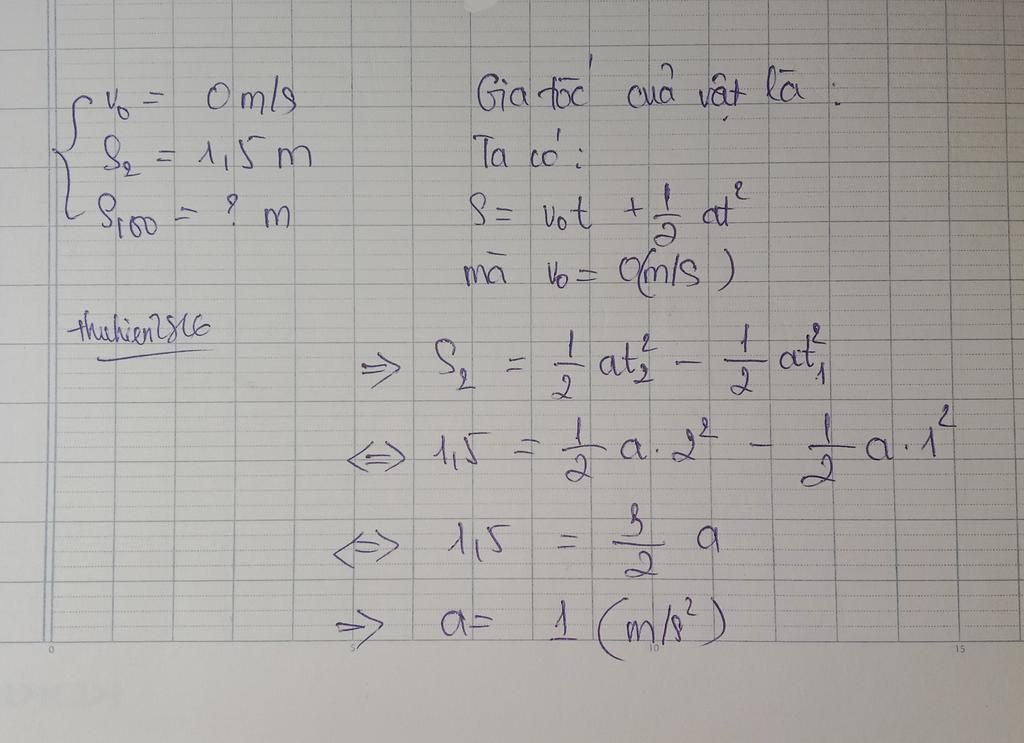 v₀ = 0 m/s
S₂ = 1,5 m
S₁₀₀ = ? m
thuhien2816
Gia tốc của vật là :
Ta có :
S = v₀t + 1/2 at²
mà v₀ = 0(m/s)
=> S₂ = 1/2 at₂² - 1/2 at₁²
<=> 1,5 = 1/2 a . 2² - 1/2 a . 1²
<=> 1,5 = 3/2 a
=> a = 1 (m/s²)
0 5 10 15